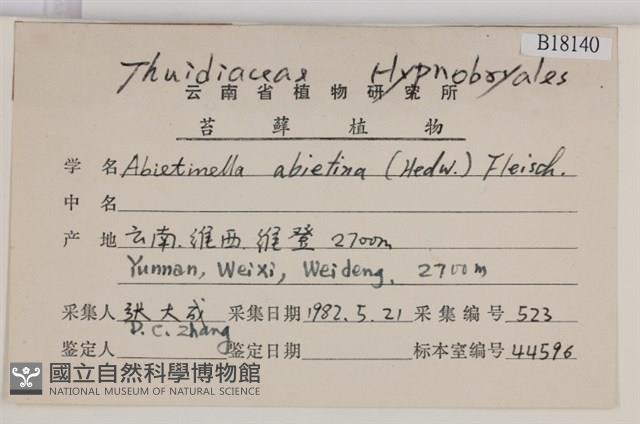 B18140
Thuidiaceae Hypnobryales
云南省植物研究所
苔藓植物
学名 Abietinella abietina (Hedw.) Fleisch.
中名
产地 云南.维西.维登 2700m
Yunnan, Weixi, Weideng, 2700m
采集人 张大成 采集日期 1982.5.21 采集编号 523
D.C.Zhang
鉴定人 鉴定日期 标本室编号 44596
國立自然科學博物館
NATIONAL MUSEUM OF NATURAL SCIENCE